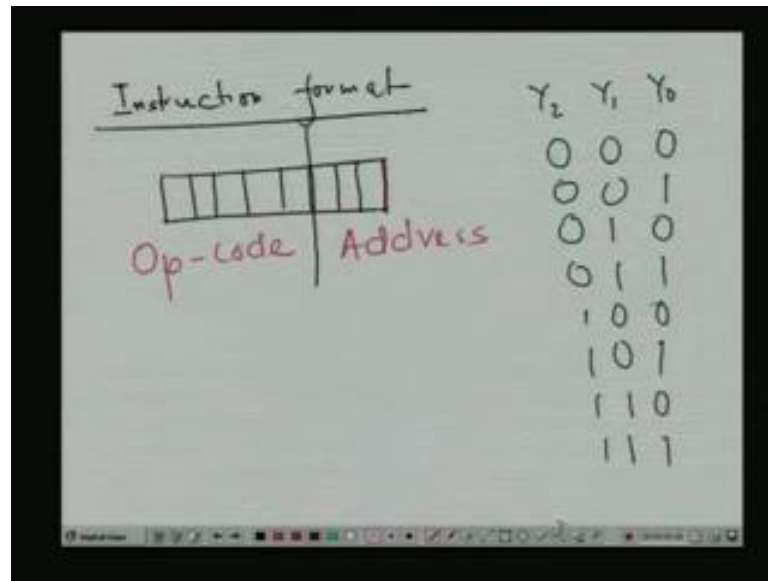 Instruction format
Op-code Address
Y₂ Y₁ Y₀
0 0 0
0 0 1
0 1 0
0 1 1
1 0 0
1 0 1
1 1 0
1 1 1